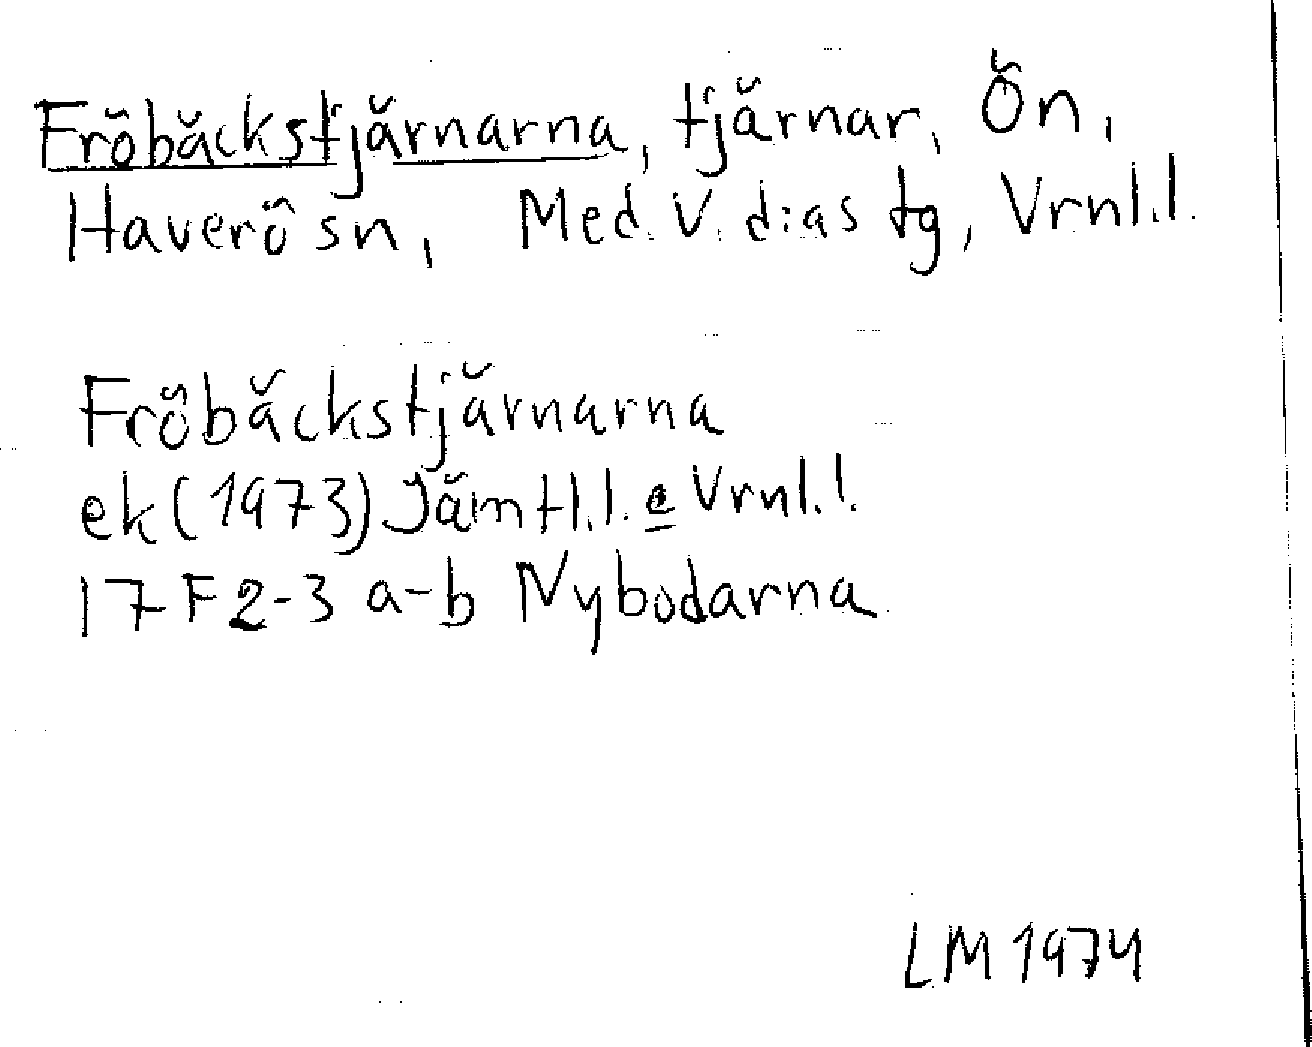 Fröbäckstjärnarna, tjärnar, Ön,
Haverö sn, Med. V. d:as tg, Vrnl.l.
Fröbäckstjärnarna
ek (1973) Jämtl.l. e Vrnl.l.
17 F 2-3 a-b Nybodarna
LM 1974